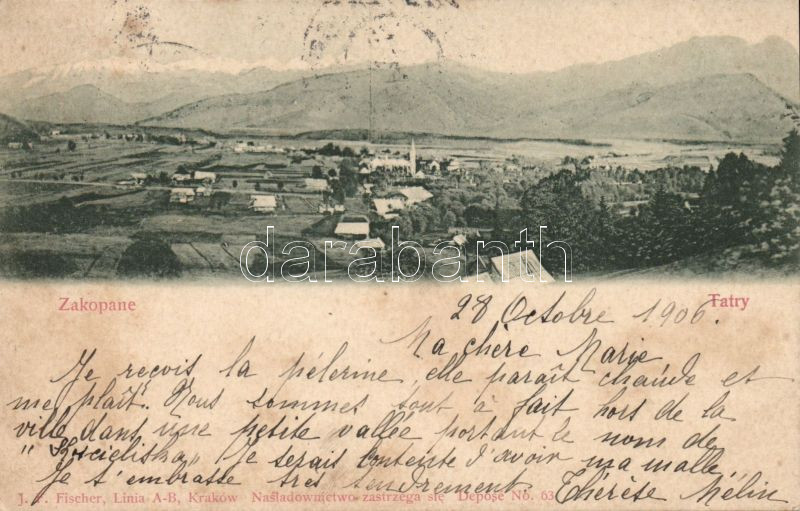 darabanth
Zakopane
Tatry
28 Octobre 1906.
Ma chère Marie
Je reçois la pélerine, elle paraît chaude et
me plaît. Nous sommes tout à fait hors de la
ville dans une petite vallée portant le nom de
"Koscieliska" Je serais contente d'avoir ma malle.
Je t'embrasse tres tendrement. Thérèse Mélin
J. F. Fischer, Linia A-B, Kraków Naśladownictwo zastrzega się Depose No. 63